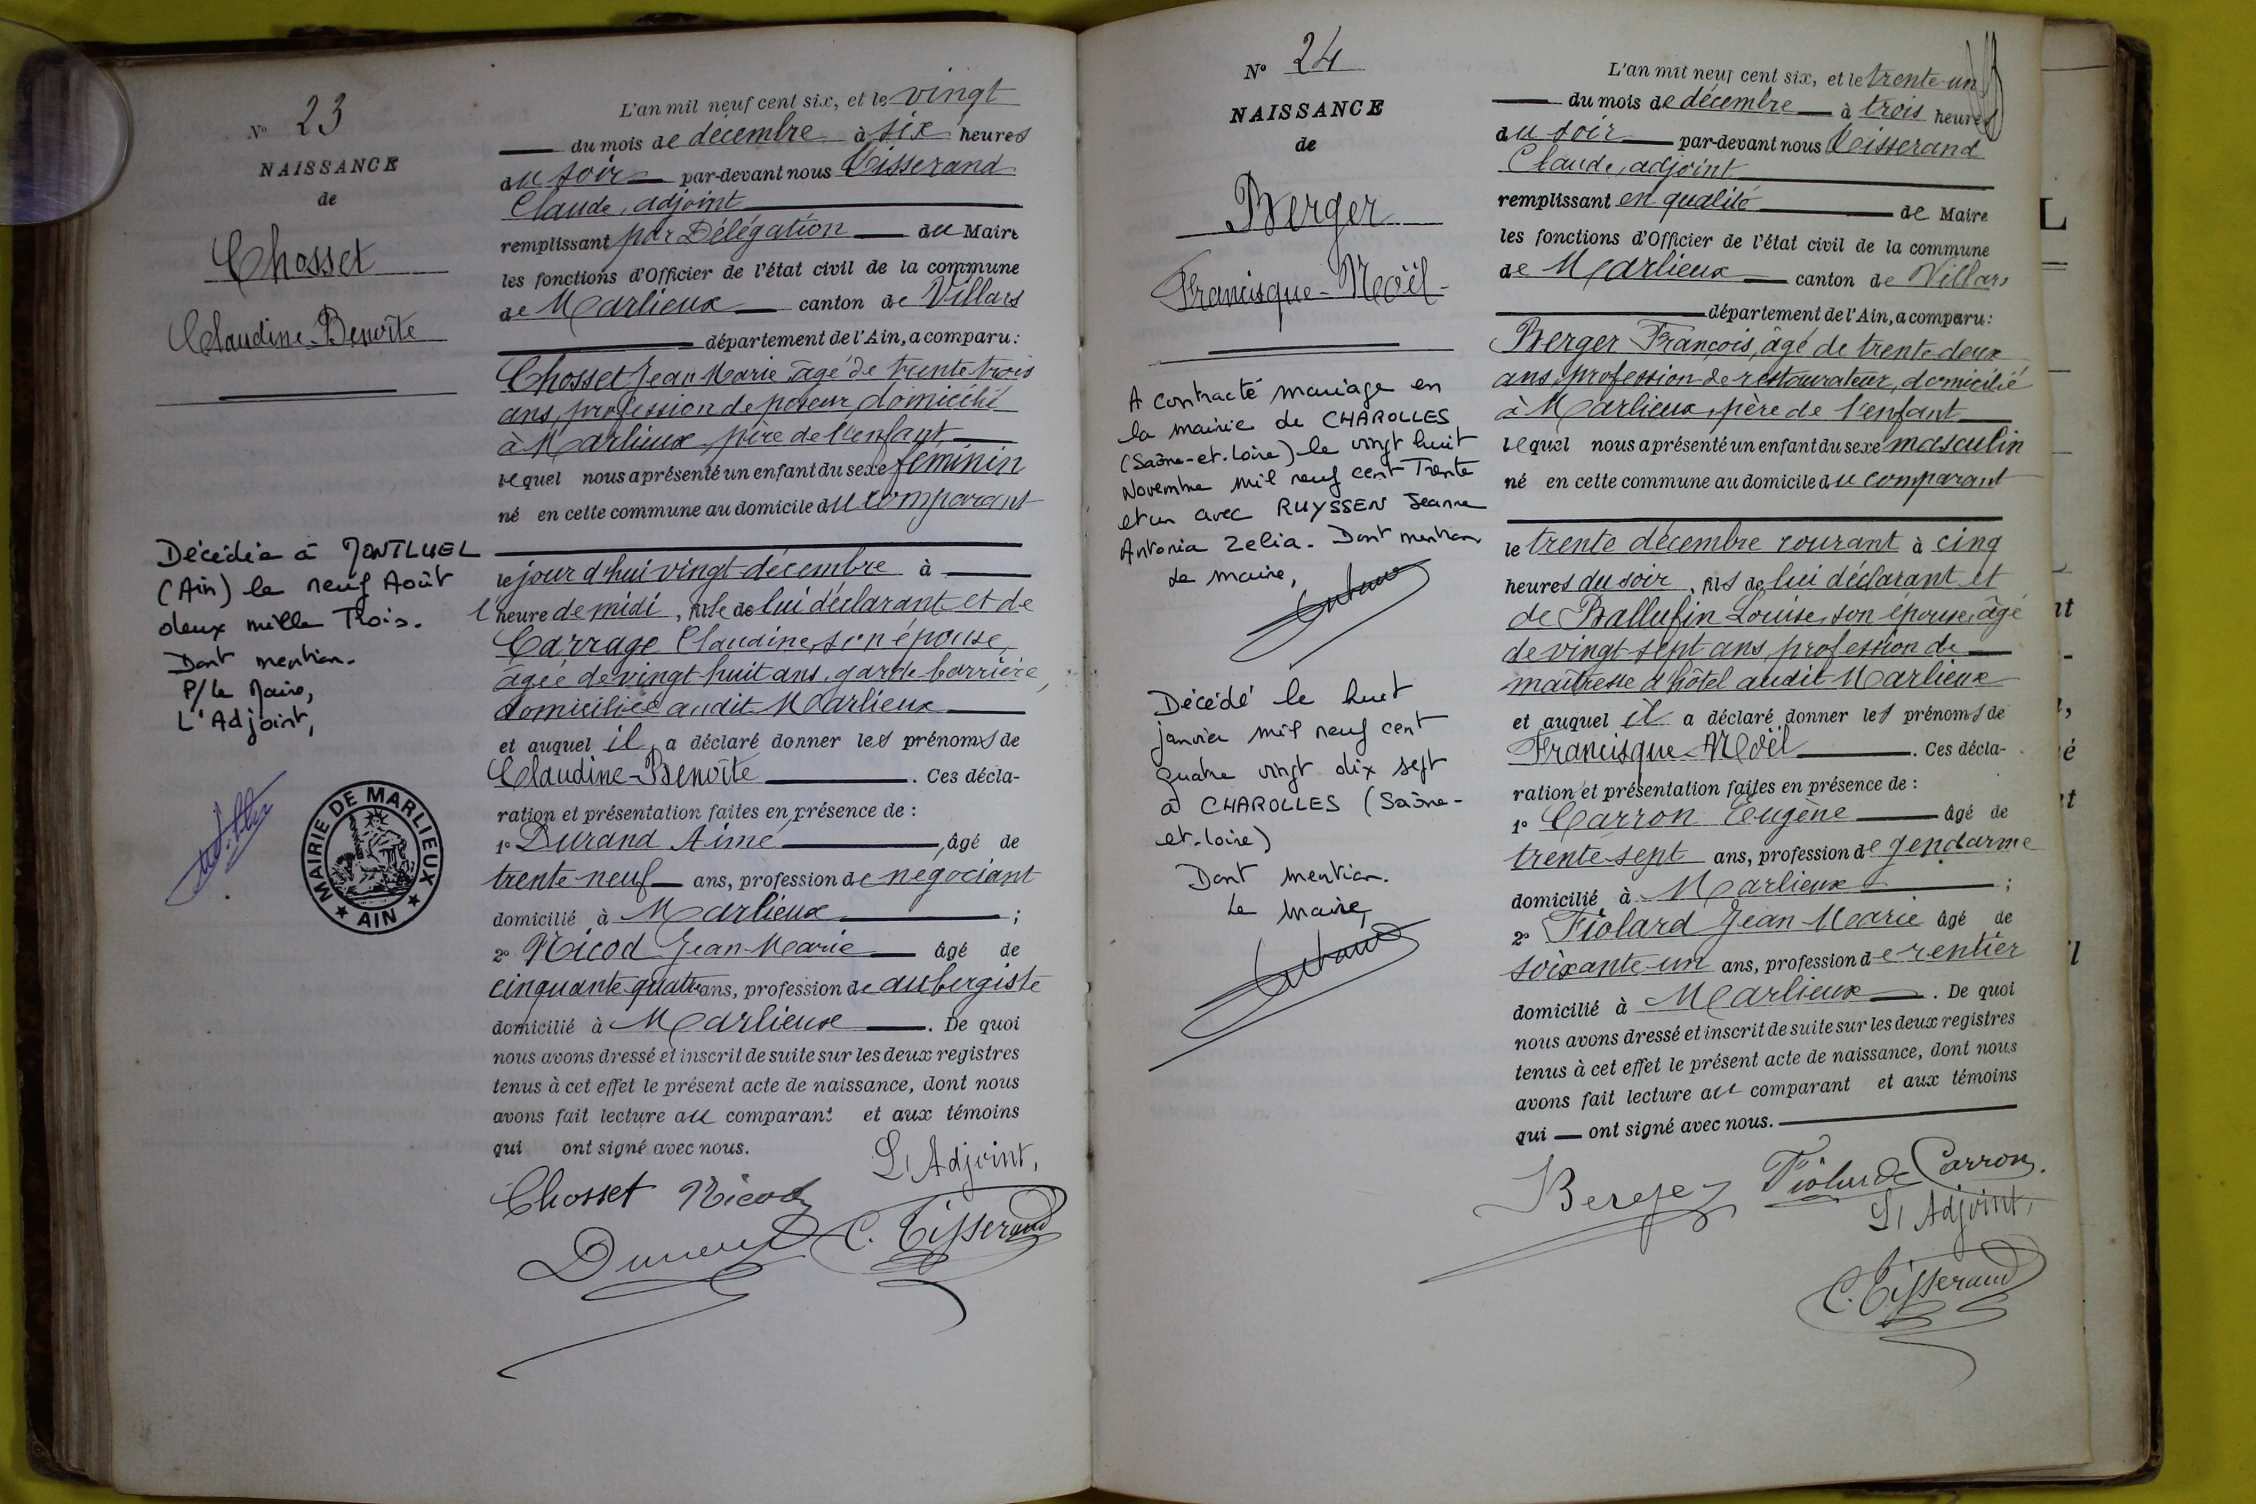 N° 23
NAISSANCE
de
Chosset
Claudine-Benoîte
Décédée à MONTLUEL
(Ain) le neuf Août
deux mille Trois.
Dont mention.
P/Le Maire,
L'Adjoint,
MAIRIE DE MARLIEUX
★ AIN ★
L'an mil neuf cent six, et le vingt
du mois de décembre à six heures
du soir par-devant nous Tisserand
Claude, adjoint
remplissant par Délégation du Maire
les fonctions d'Officier de l'état civil de la commune
de Marlieux canton de Villars
département de l'Ain, a comparu :
Chosset Jean Marie âgé de trente trois
ans, profession de poseur, domicilié
à Marlieux, père de l'enfant
lequel nous a présenté un enfant du sexe féminin
né en cette commune au domicile du comparant
le jour d'hui vingt décembre à
l'heure de midi, fille de lui déclarant et de
Carrage Claudine, son épouse,
âgée de vingt huit ans, garde-barrière,
domiciliée audit Marlieux
et auquel il a déclaré donner les prénoms de
Claudine-Benoîte . Ces décla-
ration et présentation faites en présence de :
1° Durand Aimé , âgé de
trente-neuf ans, profession de négociant
domicilié à Marlieux ;
2° Nicod Jean-Marie âgé de
cinquante-quatre ans, profession de aubergiste
domicilié à Marlieux . De quoi
nous avons dressé et inscrit de suite sur les deux registres
tenus à cet effet le présent acte de naissance, dont nous
avons fait lecture au comparant et aux témoins
qui ont signé avec nous.
L'Adjoint,
Chosset Nicod
Durand C. Tisserand
N° 24
NAISSANCE
de
Berger
Francisque-Noël
A contracté mariage en
la mairie de CHAROLLES
(Saône-et-Loire) le vingt huit
Novembre mil neuf cent Trente
et un avec RUYSSEN Jeanne
Antonia Zelia. Dont mention
Le maire,
Décédé le huit
janvier mil neuf cent
quatre vingt dix sept
à CHAROLLES (Saône-
et-Loire)
Dont mention.
Le Maire,
L'an mil neuf cent six, et le trente-un
du mois de décembre à trois heures
du soir par-devant nous Tisserand
Claude, adjoint
remplissant en qualité de Maire
les fonctions d'Officier de l'état civil de la commune
de Marlieux canton de Villars
département de l'Ain, a comparu :
Berger François, âgé de trente-deux
ans, profession de restaurateur, domicilié
à Marlieux, père de l'enfant
lequel nous a présenté un enfant du sexe masculin
né en cette commune au domicile du comparant
le trente décembre courant à cinq
heures du soir, fils de lui déclarant et
de Ballufin Louise, son épouse, âgé
de vingt-sept ans, profession de
maîtresse d'hôtel audit Marlieux
et auquel il a déclaré donner les prénoms de
Francisque-Noël . Ces décla-
ration et présentation faites en présence de :
1° Carron Eugène âgé de
trente-sept ans, profession de gendarme
domicilié à Marlieux ;
2° Fiolard Jean-Marie âgé de
soixante-un ans, profession de rentier
domicilié à Marlieux . De quoi
nous avons dressé et inscrit de suite sur les deux registres
tenus à cet effet le présent acte de naissance, dont nous
avons fait lecture au comparant et aux témoins
qui ont signé avec nous.
Berger Fiolard Carron.
L'Adjoint,
C. Tisserand